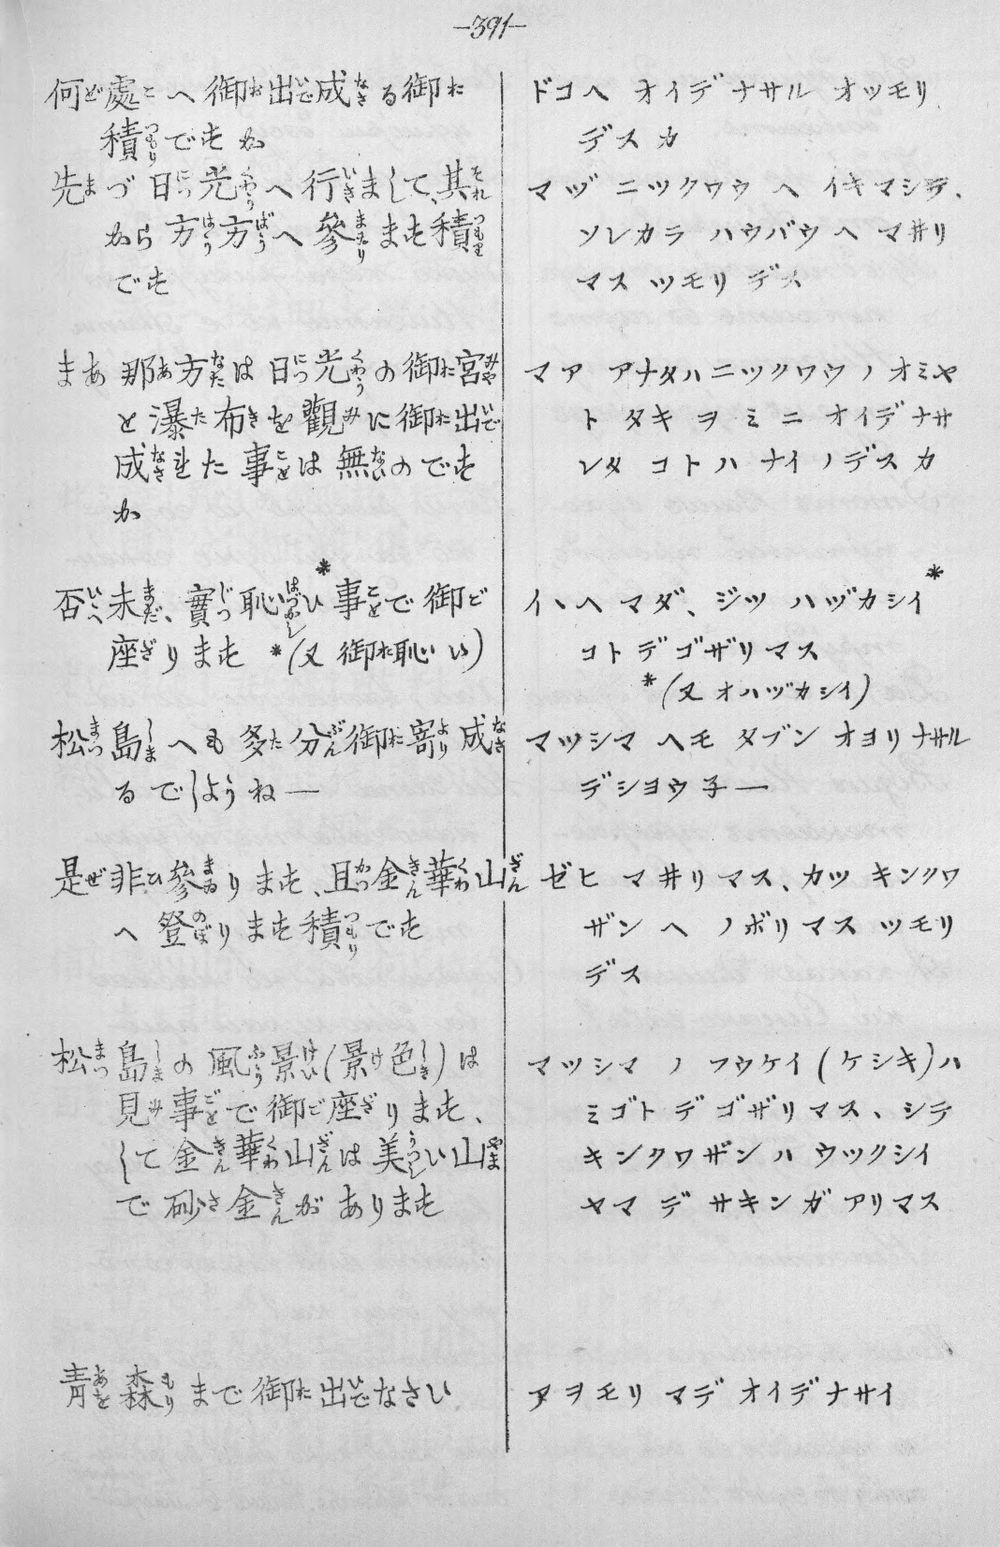 —391—
何處へ御出成る御
積ですか
先づ日光へ行まして、其
から方方へ參ます積
です
まあ那方は日光の御宮
と瀑布を觀に御出
成れた事は無のです
か
否未、實恥い*事で御
座ります *(又御恥い)
松島へも多分御寄成
るでしようねー
是非參ります、且金華山
へ登ります積です
松島の風景(景色)は
見事で御座ります、
して金華山は美い山
で砂金があります
青森まで御出なさい
ドコヘ オイデ ナサル オツモリ
デスカ
マヅ ニツクワウ ヘ イキマシテ、
ソレカラ ハウバウ ヘ マヰリ
マス ツモリ デス
マア アナタハ ニツクワウノ オミヤ
ト タキ ヲ ミニ オイデ ナサ
レタ コト ハ ナイノデスカ
イヽヘ マダ、ジツ ハヅカシイ*
コト デ ゴザリマス
*(又 オハヅカシイ)
マツシマ ヘモ タブン オヨリ ナサル
デシヨウ子ー
ゼヒ マヰリマス、カツ キンクワ
ザン ヘ ノボリマス ツモリ
デス
マツシマ ノ フウケイ (ケシキ)ハ
ミゴト デ ゴザリマス、シテ
キンクワザン ハ ウツクシイ
ヤマ デ サキン ガ アリマス
アヲモリ マデ オイデナサイ